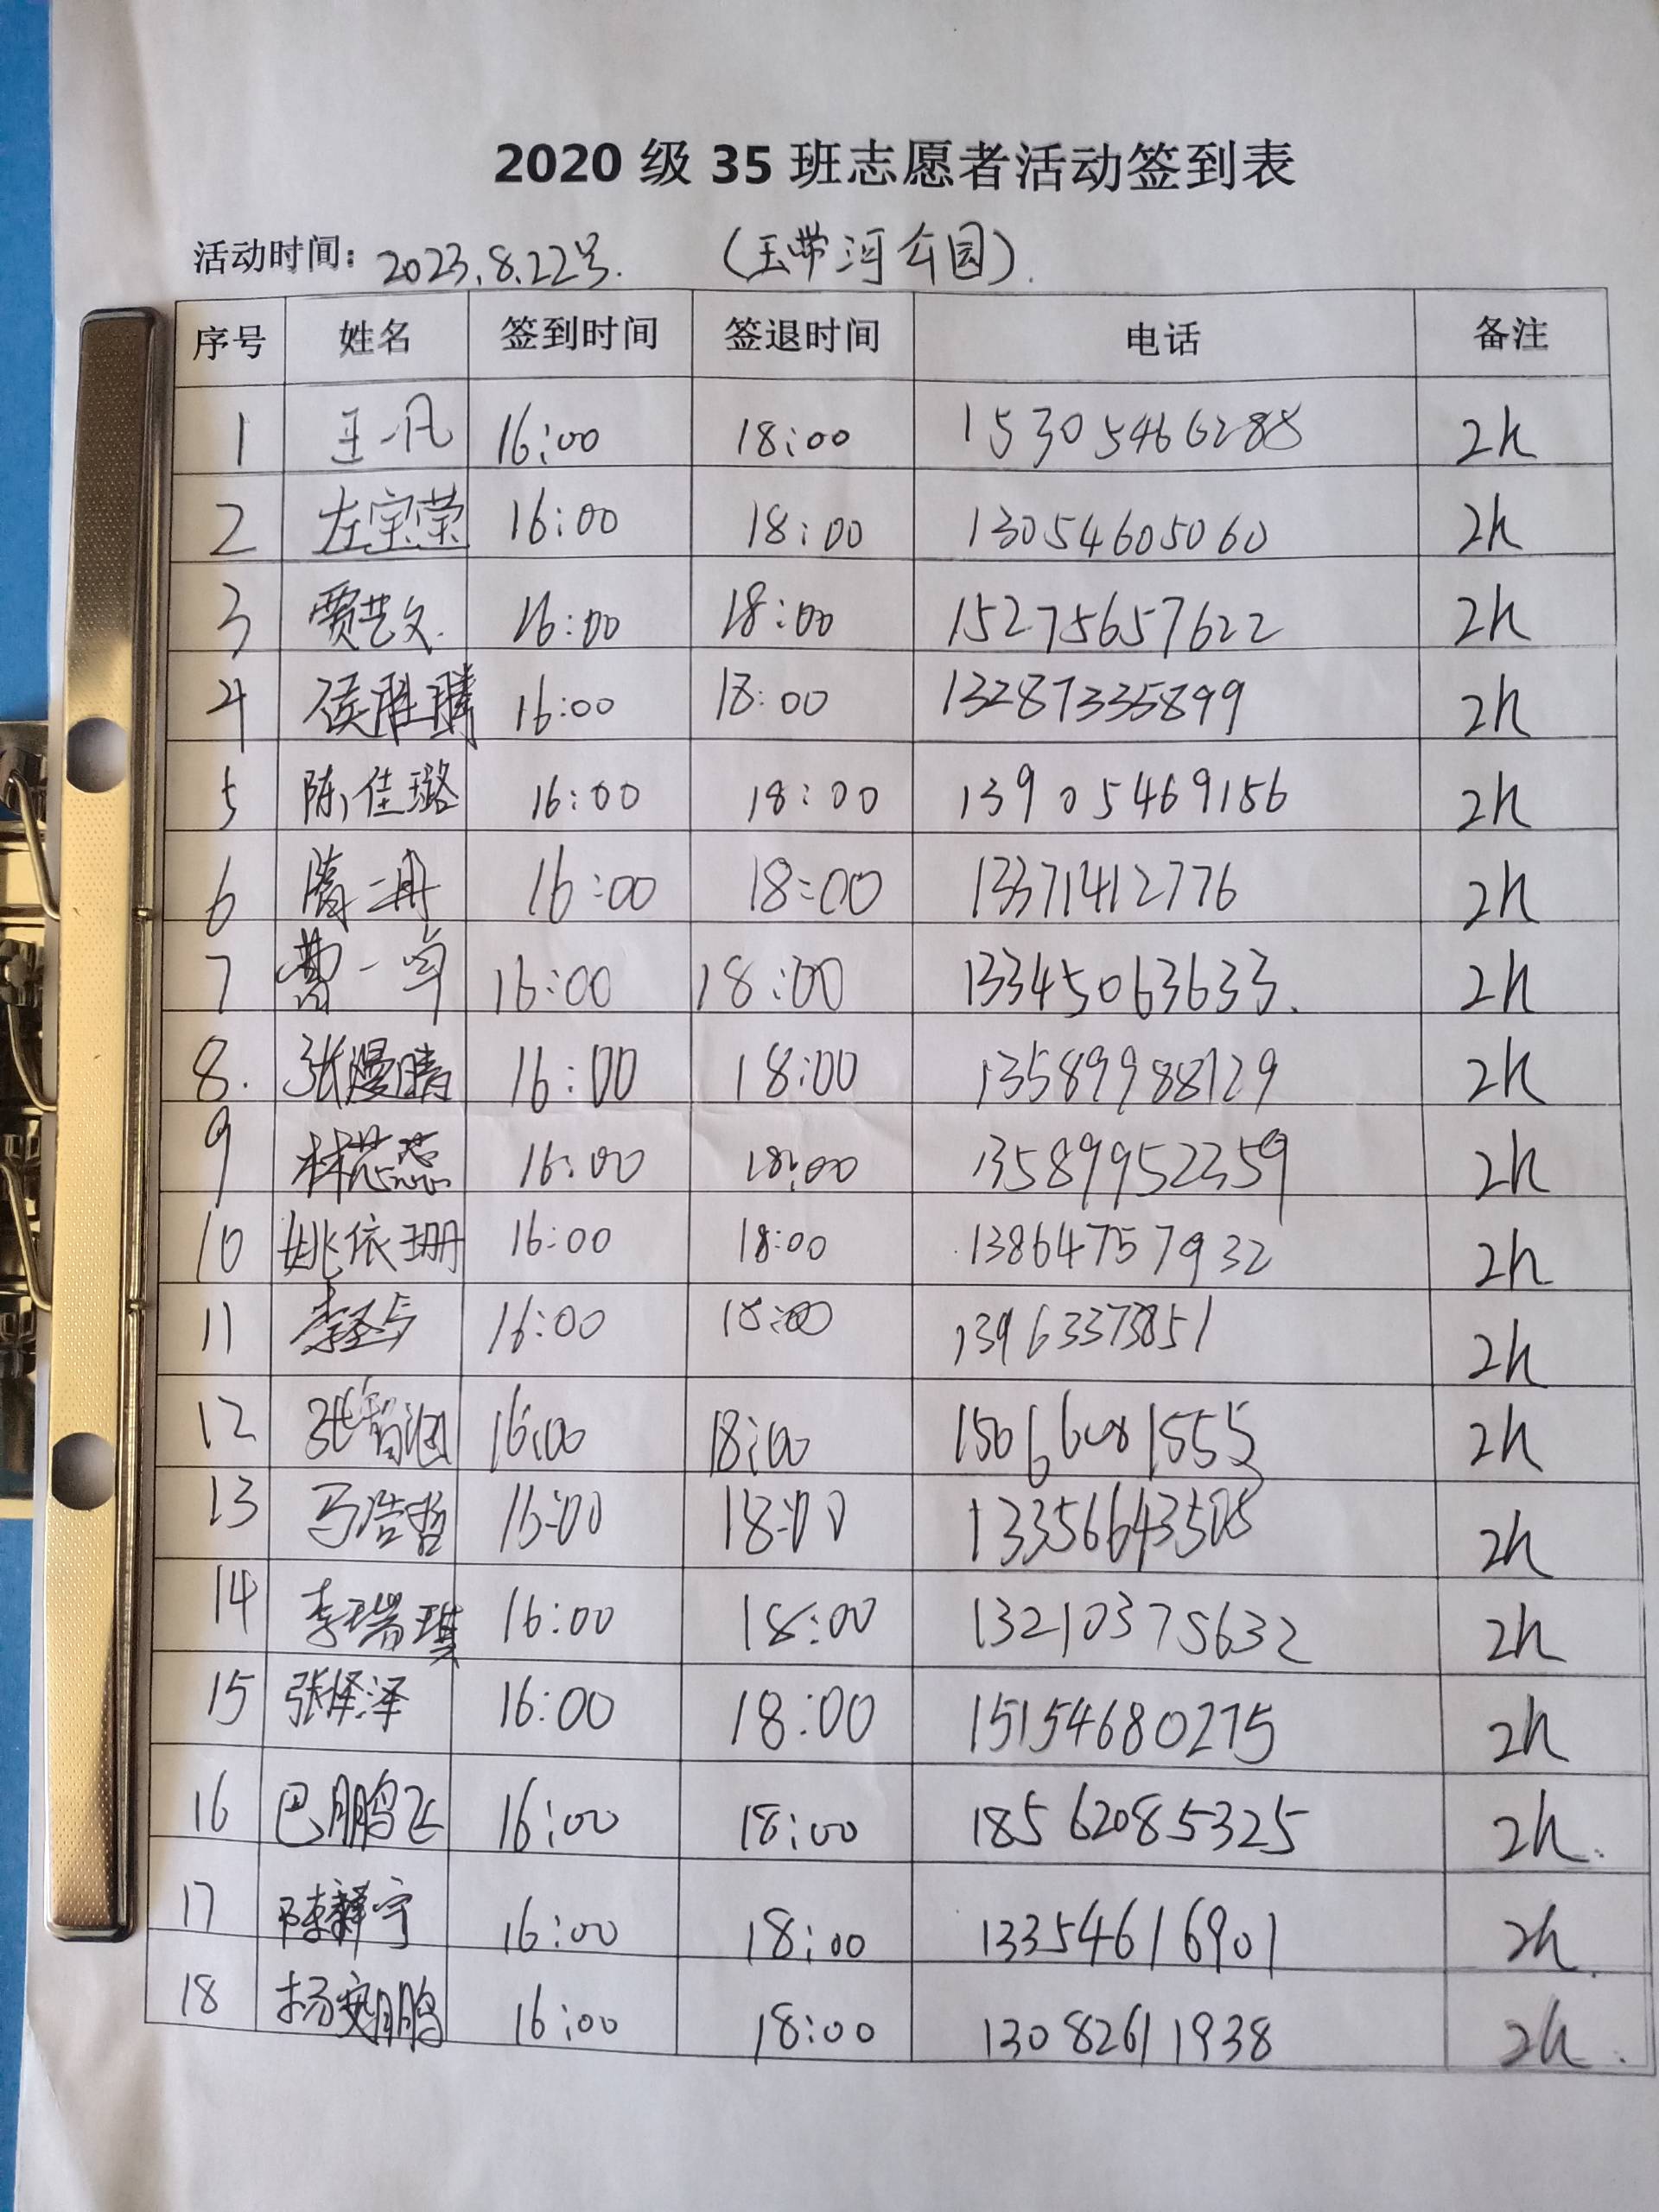 2020 级 35 班志愿者活动签到表
活动时间: 2023.8.22号. (玉带河公园).
序号 姓名 签到时间 签退时间 电话 备注
1 王一凡 16:00 18:00 15305466288 2h
2 左宝荣 16:00 18:00 13054605060 2h
3 贾艺文 16:00 18:00 15275657622 2h
4 侯胜腾 16:00 18:00 13287335899 2h
5 陈佳璐 16:00 18:00 13905469156 2h
6 隋一冉 16:00 18:00 13371412776 2h
7 曹一卓 16:00 18:00 13345063633. 2h
8. 张漫晴 16:00 18:00 13589988129 2h
9 林芯蕊 16:00 18:00 13589952359 2h
10 姚依珊 16:00 18:00 13864757932 2h
11 16:00 18:00 13963373851 2h
12 16:00 18:00 2h
13 马浩哲 16:00 18:00 2h
14 李瑞琪 16:00 18:00 13210375632 2h
15 张怿泽 16:00 18:00 15154680275 2h
16 巴鹏飞 16:00 18:00 18562085325 2h.
17 16:00 18:00 13354616901 2h.
18 杨安鹏 16:00 18:00 13082611938 2h.